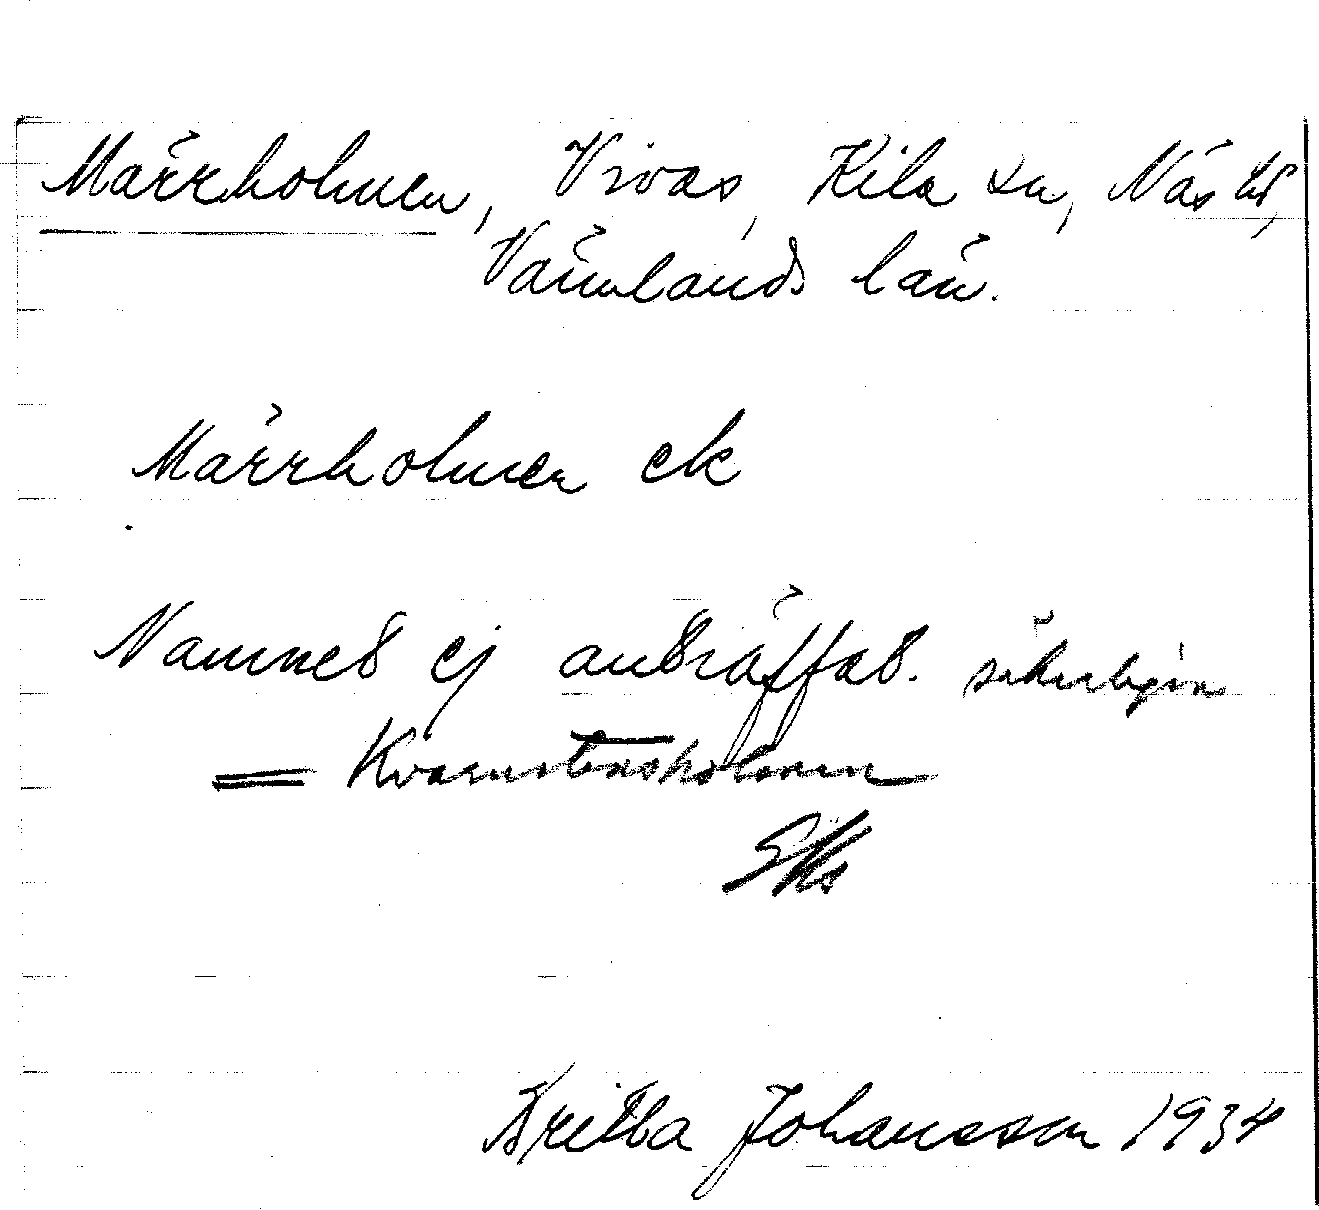 Märrholmen, Vivas, Kila sn, Näs hd,
Värmlands län.
Märrholmen ek
Namnet ej anträffat. säkerligen
= Kvarnstensholmen
Britta Johansson 1934